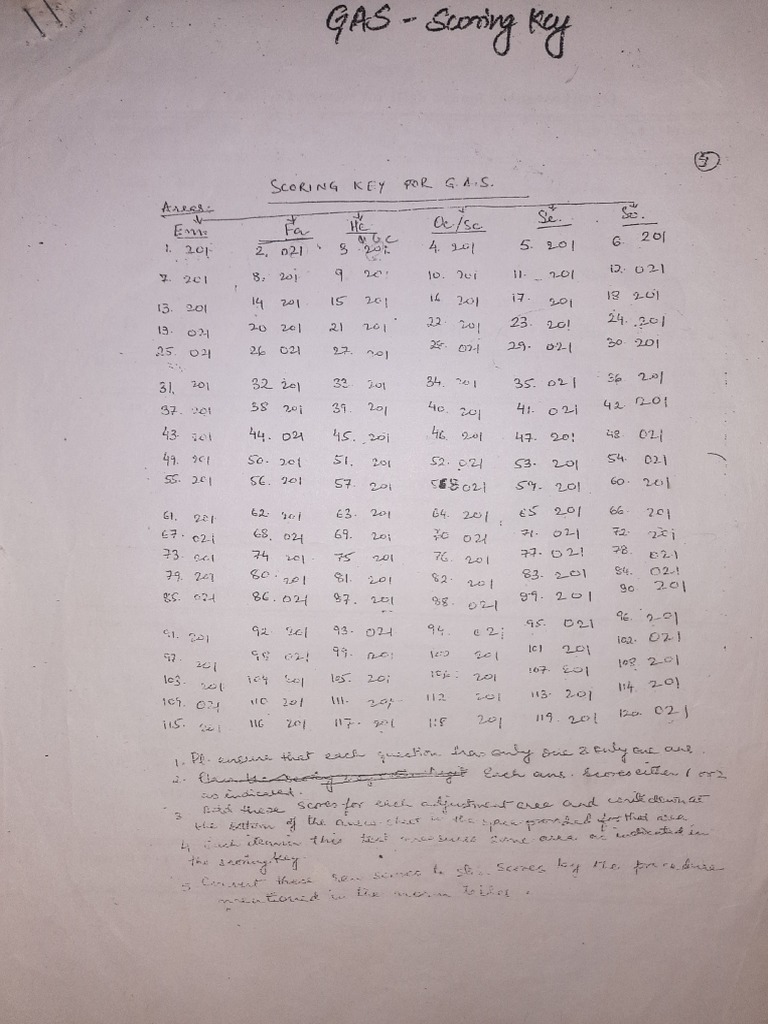 GAS - Scoring Key
5
SCORING KEY FOR G.A.S.
Areas:
Em. Fa Hc Oc/Sc Se. So.
1. 201 2. 021 3 201 4. 201 5. 201 6. 201
7. 201 8. 201 9 201 10. 201 11. 201 12. 021
13. 201 14 201 15 201 16 201 17. 201 18 201
19. 021 20 201 21 201 22. 201 23. 201 24. 201
25. 021 26 021 27. 201 28. 021 29. 021 30. 201
31, 201 32 201 33 201 34. 201 35. 021 36 201
37. 201 38 201 39. 201 40. 201 41. 021 42 201
43. 201 44. 021 45. 201 46. 201 47. 201 48. 021
49. 201 50. 201 51. 201 52. 021 53. 201 54. 021
55. 201 56. 201 57. 201 58 021 59. 201 60. 201
61. 201 62. 201 63. 201 64. 201 65 201 66. 201
67. 021 68. 021 69. 201 70 021 71. 021 72. 201
73. 201 74 201 75 201 76. 201 77. 021 78. 021
79. 201 80. 201 81. 201 82. 201 83. 201 84. 021
85. 021 86. 021 87. 201 88. 021 89. 201 90. 201
91. 201 92. 201 93. 021 94. 021 95. 021 96. 201
97. 201 98 021 99. 201 100 201 101 201 102. 021
103. 201 104 201 105. 201 106. 201 107. 201 108. 201
109. 021 110 201 111. 201 112 201 113. 201 114. 201
115. 201 116 201 117. 201 118 201 119. 201 120. 021
1. Pl. ensure that each question has only one & only one ans.
2. Each ans. scores either 1 or 2
as indicated.
3 Add these scores for each adjustment area and write down at
the bottom of the answer sheet in the space provided for that area
4. Each item in this test measures some area as indicated in
the scoring key.
5 Convert these raw scores to scores by the procedure
mentioned in the norm tables.